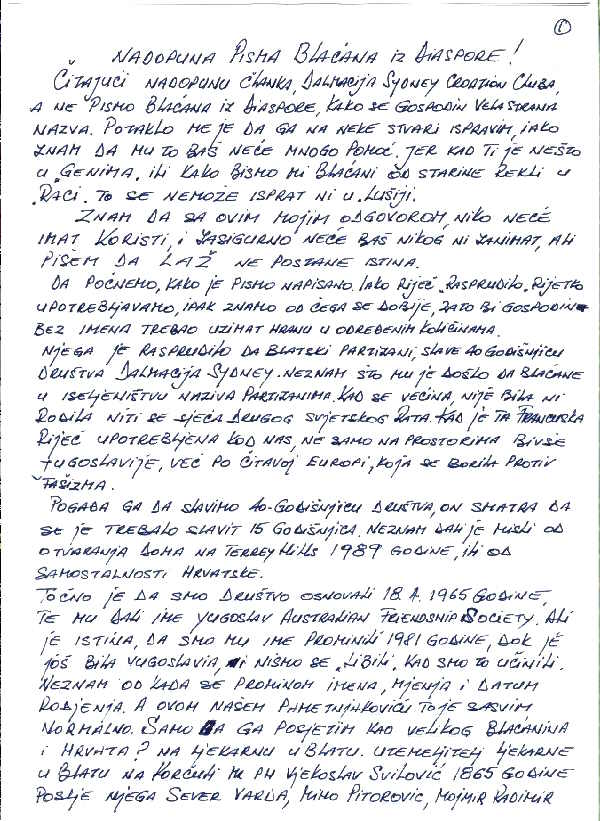 1
NADOPUNA PISMA BLAĆANA IZ DIASPORE!
ČITAJUĆI NADOPUNU ČLANKA, DALMACIJA SYDNEY CROATION CLUBA,
A NE PISMO BLAĆANA IZ DIASPORE, KAKO SE GOSPODIN VELA STRANA
NAZVA. POTAKLO ME JE DA GA NA NEKE STVARI ISPRAVIM, IAKO
ZNAM DA MU TO BAŠ NEĆE MNOGO POMOĆ. JER KAD TI JE NEŠTO
U „GENIMA„ ILI KAKO BISMO MI BLAĆANI OD STARINE REKLI U
„RACI„ TO SE NEMOŽE ISPRAT NI U „LUŠIJI„
ZNAM DA SA OVIM MOJIM ODGOVOROM, NIKO NEĆE
IMAT KORISTI, I ZASIGURNO NEĆE BAŠ NIKOG NI ZANIMAT, ALI
PIŠEM DA LAŽ NE POSTANE ISTINA.
DA POČNEMO, KAKO JE PISMO NAPISANO. IAKO RIJEČ „RASPRUDILO„ RIJETKO
UPOTREBLJAVAMO, IPAK ZNAMO OD ČEGA SE DOBIJE, ZATO BI GOSPODIN
BEZ IMENA TREBAO UZIMAT HRANU U ODREĐENIM KOLIČINAMA.
NJEGA JE RASPRUDILO DA BLATSKI PARTIZANI, SLAVE 40 GODIŠNJICU
DRUŠTVA DALMACIJA SYDNEY. NEZNAM ŠTO MU JE DOŠLO DA BLAĆANE
U ISELJENIŠTVU NAZIVA PARTIZANIMA. KAD SE VEĆINA, NIJE BILA NI
RODILA NITI SE SJEĆA DRUGOG SVJETSKOG RATA. KAD JE TA FRANCUSKA
RIJEČ UPOTREBLJENA KOD NAS, NE SAMO NA PROSTORIMA BIVŠE
JUGOSLAVIJE, VEĆ PO ČITAVOJ EUROPI, KOJA SE BORILA PROTIV
FAŠIZMA.
POGAĐA GA DA SLAVIMO 40-GODIŠNJICU DRUŠTVA, ON SMATRA DA
SE JE TREBALO SLAVIT 15 GODIŠNJICA. NEZNAM DALI JE MISLI OD
OTVARANJA DOMA NA TERREY HILLS 1989 GODINE, ILI OD
SAMOSTALNOSTI HRVATSKE.
TOČNO JE DA SMO DRUŠTVO OSNOVALI 18. 1. 1965 GODINE,
TE MU DALI IME YUGOSLAV AUSTRALIAN FRIENDSHIP SOCIETY. ALI
JE ISTINA, DA SMO MU IME PROMINILI 1981 GODINE, DOK JE
JOŠ BILA YUGOSLAVIA, NI NISMO SE „LIBILI„ KAD SMO TO UČINILI.
NEZNAM OD KADA SE PROMINOM IMENA, MJENJA I DATUM
ROĐENJA. A OVOM NAŠEM PAMETNJAKOVIĆU TO JE SASVIM
NORMALNO. SAMO DA GA POSJETIM KAO VELIKOG BLAĆANINA
I HRVATA? NA LJEKARNU U BLATU. UTEMELJITELJ LJEKARNE
U BLATU NA KORČULI MR PH VJEKOSLAV SVILOVIĆ 1865 GODINE
POSLJE NJEGA SEVER VARDA, MIMO PITOROVIC, MOJMIR RADIMIR